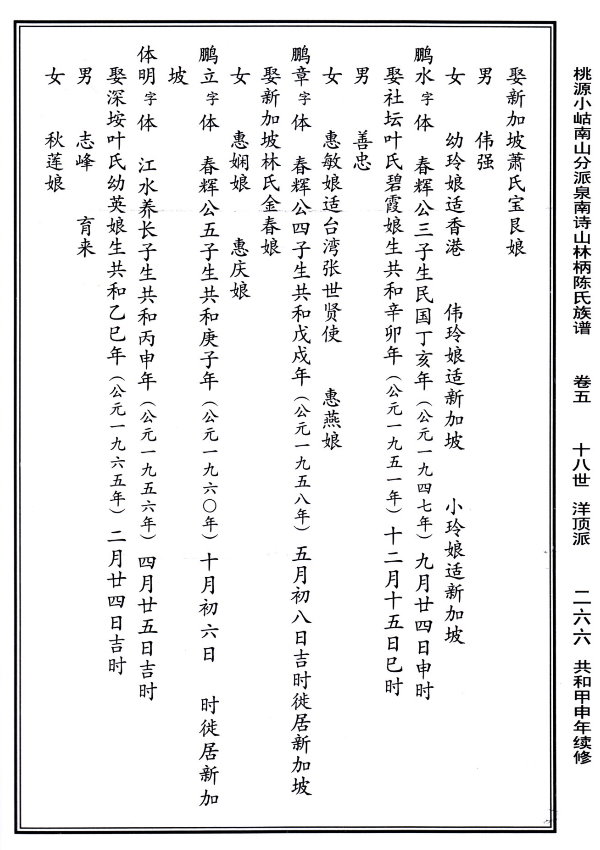 桃源小岵南山分派泉南诗山林柄陈氏族谱 卷五 十八世 洋顶派 二六六 共和甲申年续修
娶新加坡萧氏宝艮娘
男 伟强
女 幼玲娘适香港 伟玲娘适新加坡 小玲娘适新加坡
鹏水字体 春辉公三子生民国丁亥年（公元一九四七年）九月廿四日申时
娶社坛叶氏碧霞娘生共和辛卯年（公元一九五一年）十二月十五日巳时
男 善忠
女 惠敏娘适台湾张世贤使 惠燕娘
鹏章字体 春辉公四子生共和戊戌年（公元一九五八年）五月初八日吉时徙居新加坡
娶新加坡林氏金春娘
女 惠娴娘 惠庆娘
鹏立字体 春辉公五子生共和庚子年（公元一九六〇年）十月初六日 时徙居新加
坡
体明字体 江水养长子生共和丙申年（公元一九五六年）四月廿五日吉时
娶深垵叶氏幼英娘生共和乙巳年（公元一九六五年）二月廿四日吉时
男 志峰 育来
女 秋莲娘